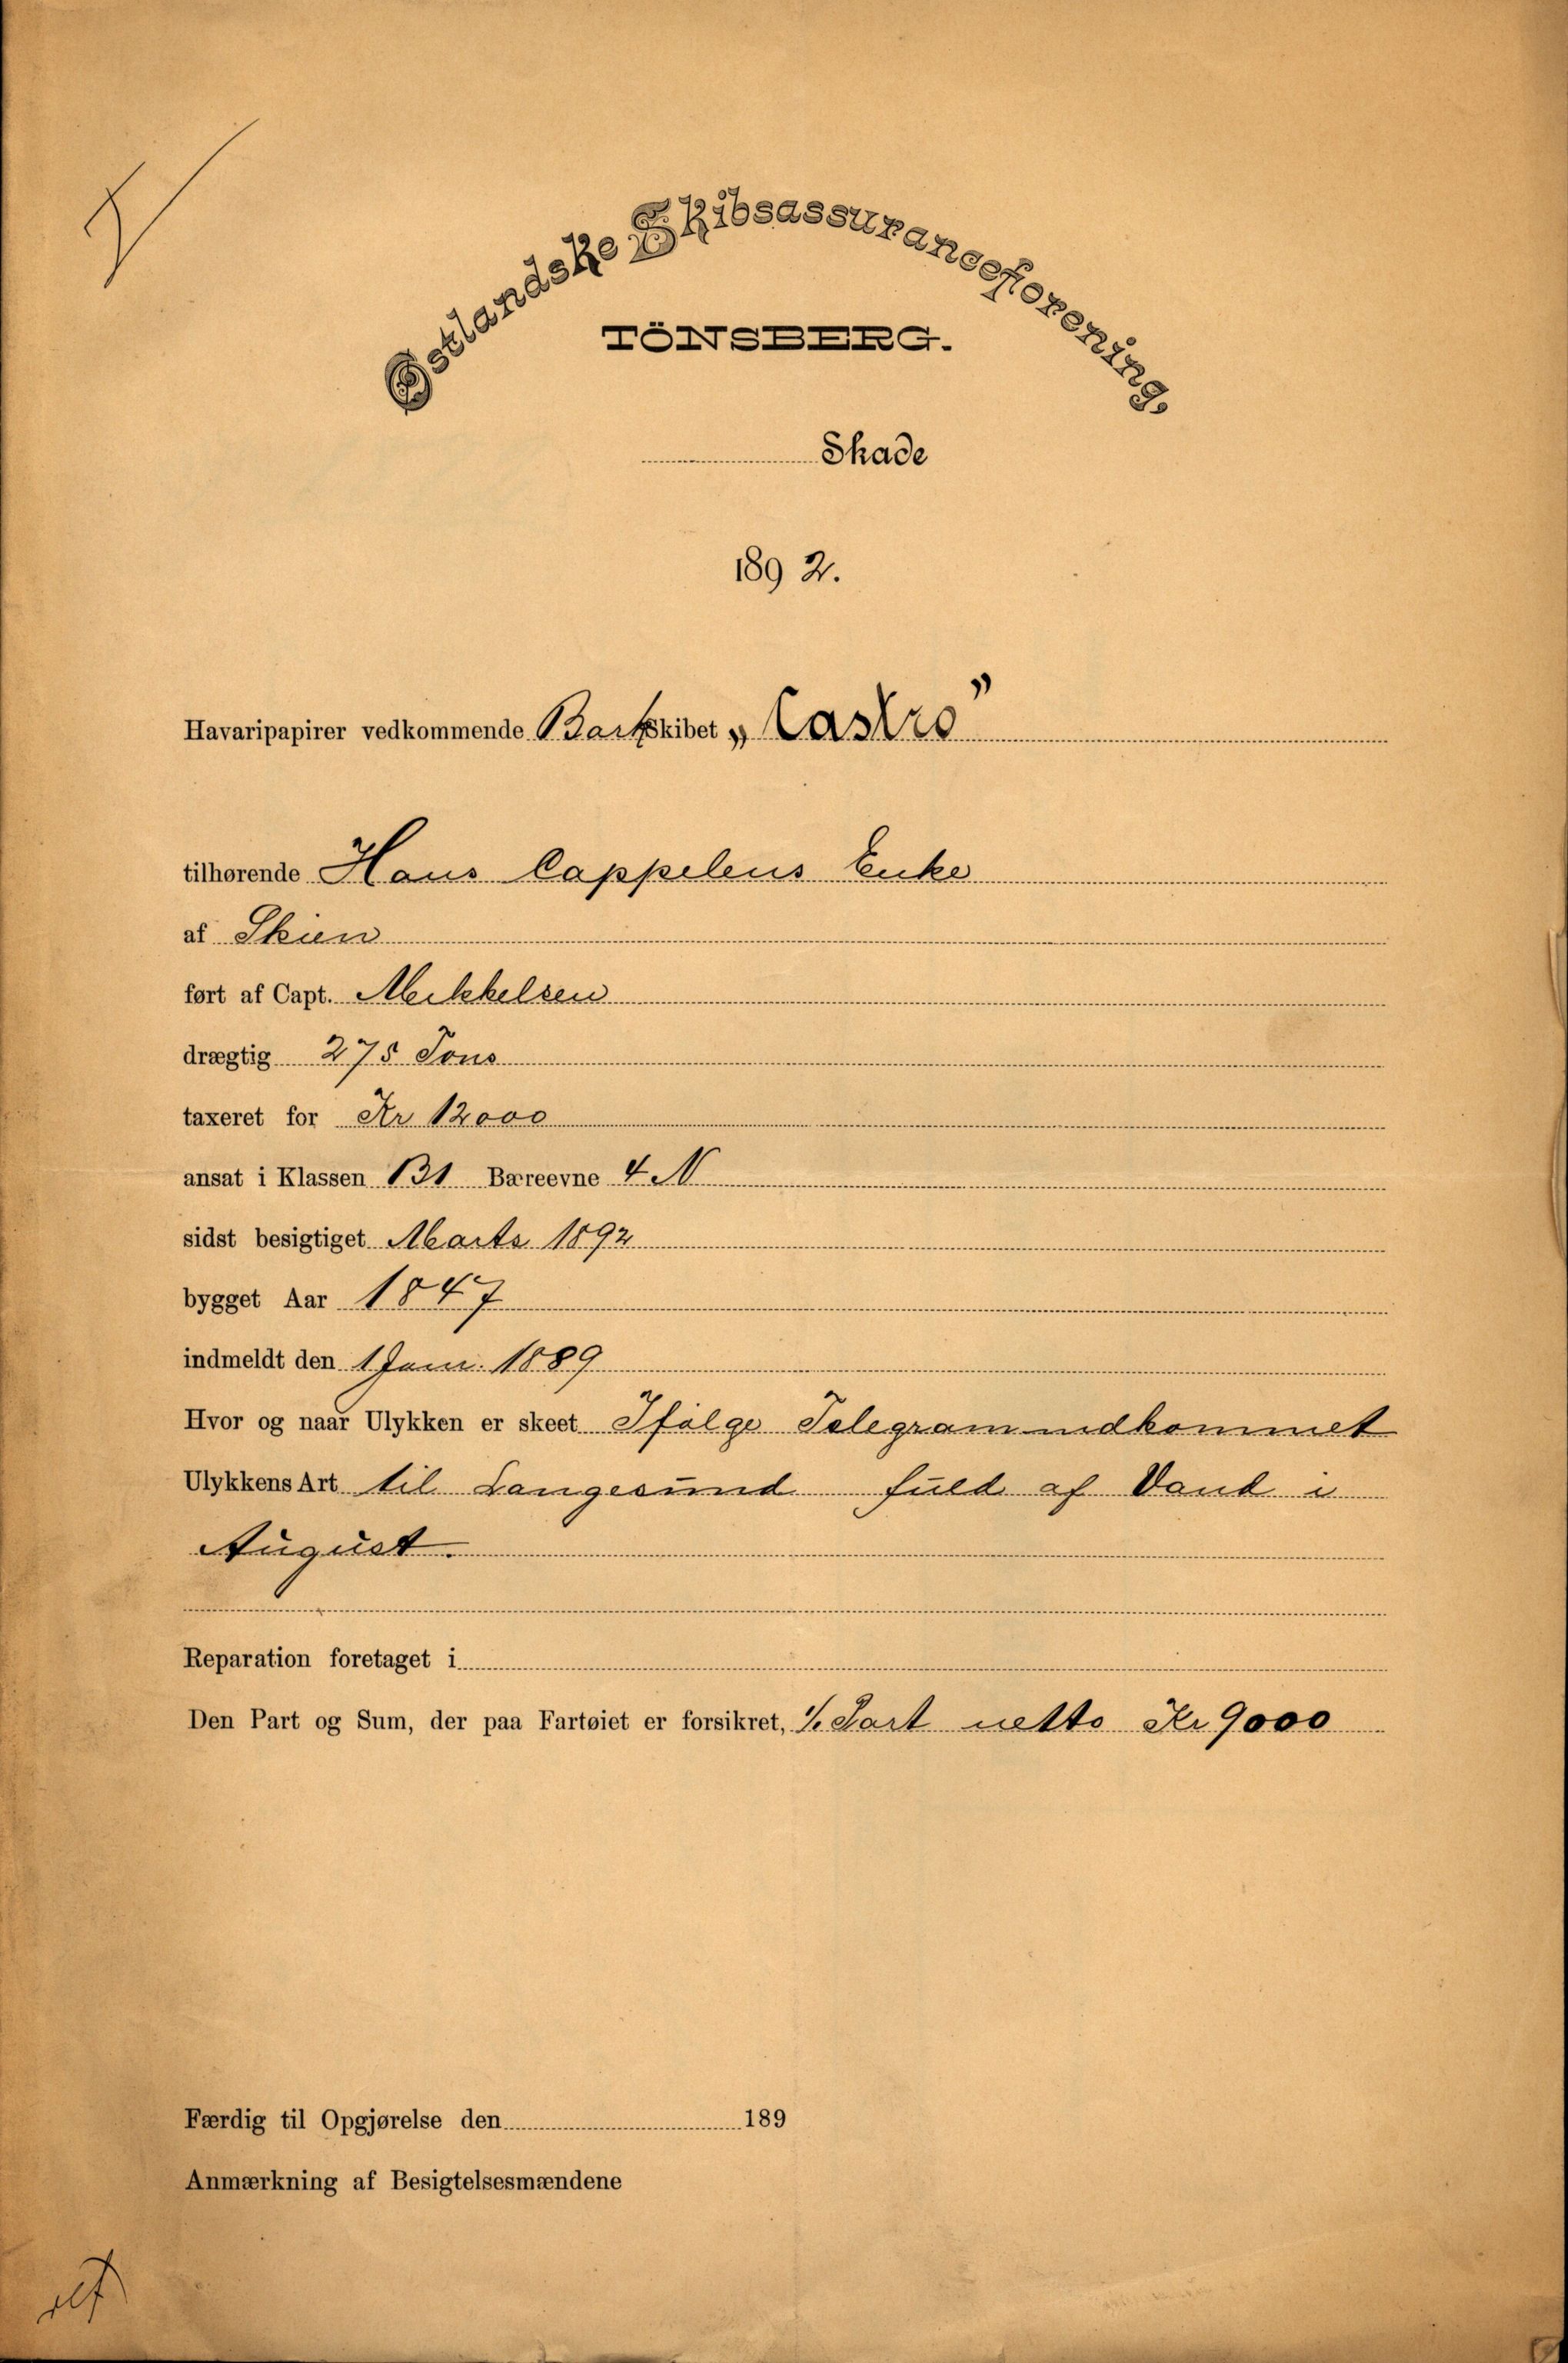 Østlandske Skibsassuranceforening.
TÖNSBERG.
Skade
1892.
Havaripapirer vedkommende Barkskibet „Castro”
tilhørende Hans Cappelens Enke
af Skien
ført af Capt. Mikkelsen
drægtig 275 Tons
taxeret for Kr 12000
ansat i Klassen B1 Bæreevne 4 N
sidst besigtiget Marts 1892
bygget Aar 1847
indmeldt den 1 Janr. 1889
Hvor og naar Ulykken er skeet Ifølge Telegram indkommet
Ulykkens Art til Langesund fuld af Vand i
August.
Reparation foretaget i
Den Part og Sum, der paa Fartøiet er forsikret, 1/1 Part netto Kr 9000
Færdig til Opgjørelse den 189
Anmærkning af Besigtelsesmændene